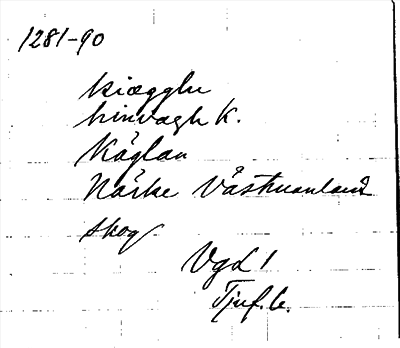 1281-90
kiægglu
hinvagh K.
Käglan
Närke Västmanland
skog
Vgd 1
Tjuf. b.